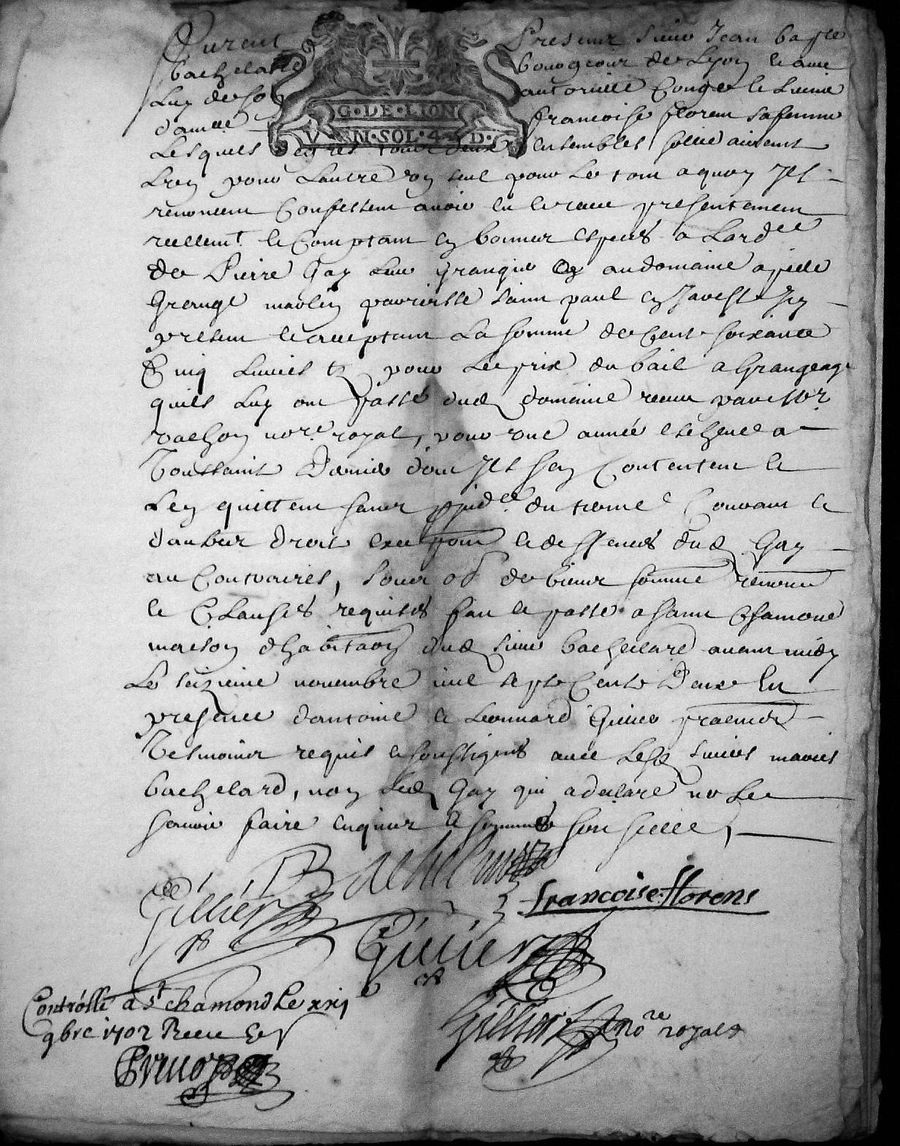 Furent Present Sieur Jean bapte
bachelard bourgeois de Lyon le avec
Luy de Son autorité Conge le Licence
damlle francoise florens sa femme
Lesquels de gres tous deux ensembles solidairement
Lun pour Lautre un seul pour le tout a quoy Jls
renoncent Confessent avoir eu le receu presentement
reellemt le Comptant en bonnes espeses a Lord
de Pierre Gay Leur granger au domaine apelle
Grange parroisse Saint paul en Javest Jcy
present le acceptant La somme de Cent soixante
Cinq Livres tz pour Le prix du bail a Grangeage
quils Luy ont passé dud domaine receu par
vachon nore royal, pour une année escheue a
Toussaint Dernier dont Jls sen Contentent le
Len quittent sans prjdce du terme Courant le
dautres droits exceptions le deffences dud Gay
au Contraires, Soubz de biens soumis renonce
le Clauses requises fait le passé a saint Chamond
maison dhabitaon dud sieur bachelard avant midy
Le seizieme novembre mil sept Cents Deux En
presence dantoine le Leonnard Gillier praticiens
Tesmoins requis le soussignes avec Lesd sieurs mariés
bachelard, non Led Gay qui a declare ne Le
scavoir faire enquis le sommé
Gillier Bachelard
francoise florens
Gillier
Contrôllé a St chamond Le xxij
9bre 1702 Receu
Gillier nore royal